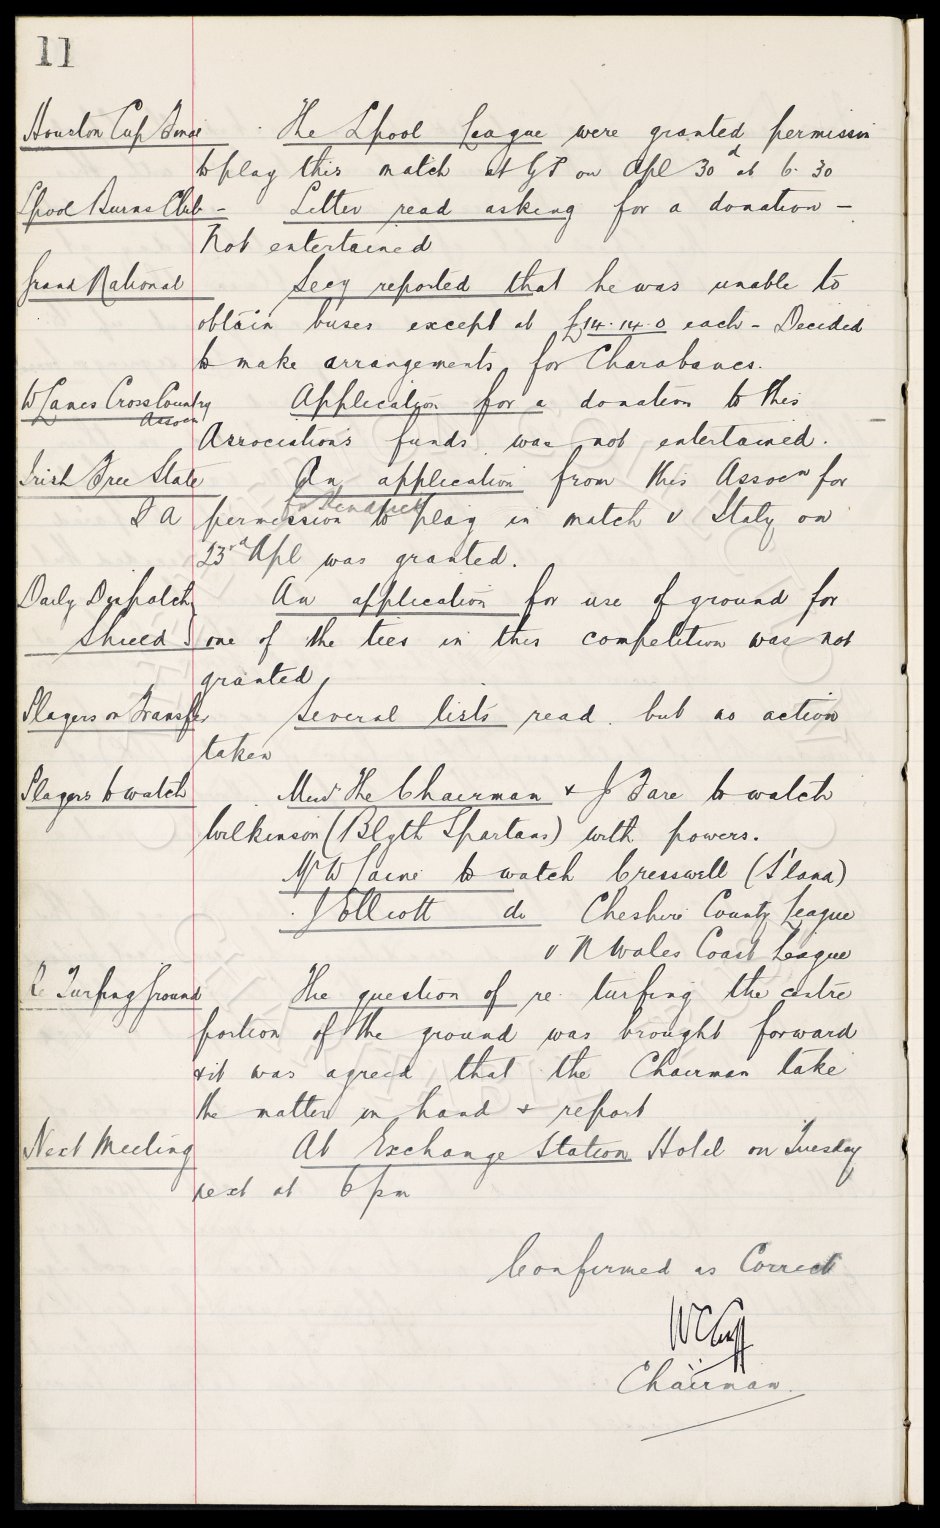 11
Houston Cup Final The Lpool League were granted permission
to play this match at GP on Apl 30 at 6.30
Lpool Burns Club - Letter read asking for a donation -
Not entertained
Grand National Secy reported that he was unable to
obtain buses except at £14.14.0 each - Decided
to make arrangements for Charabancs.
W Lancs Cross Country Assocn Application for a donation to this
Association's funds was not entertained.
Irish Free State An application from this Assocn for
F A for Kendrick
permission to play in match v Italy on
23rd Apl was granted.
Daily Dispatch An application for use of ground for
Shield one of the ties in this competition was not
granted
Players on Transfer Several lists read but no action
taken
Players to watch Messrs The Chairman & J Fare to watch
Wilkinson (Blyth Spartans) with powers.
Mr W Paine to watch Cresswell (S'land)
J Elliott do Cheshire County League
v N Wales Coast League
Re Turfing Ground The question of re turfing the centre
portion of the ground was brought forward
& it was agreed that the Chairman take
the matter in hand & report
Next Meeting At Exchange Station Hotel on Tuesday
next at 6 pm
Confirmed as Correct
W C Cuff
Chairman